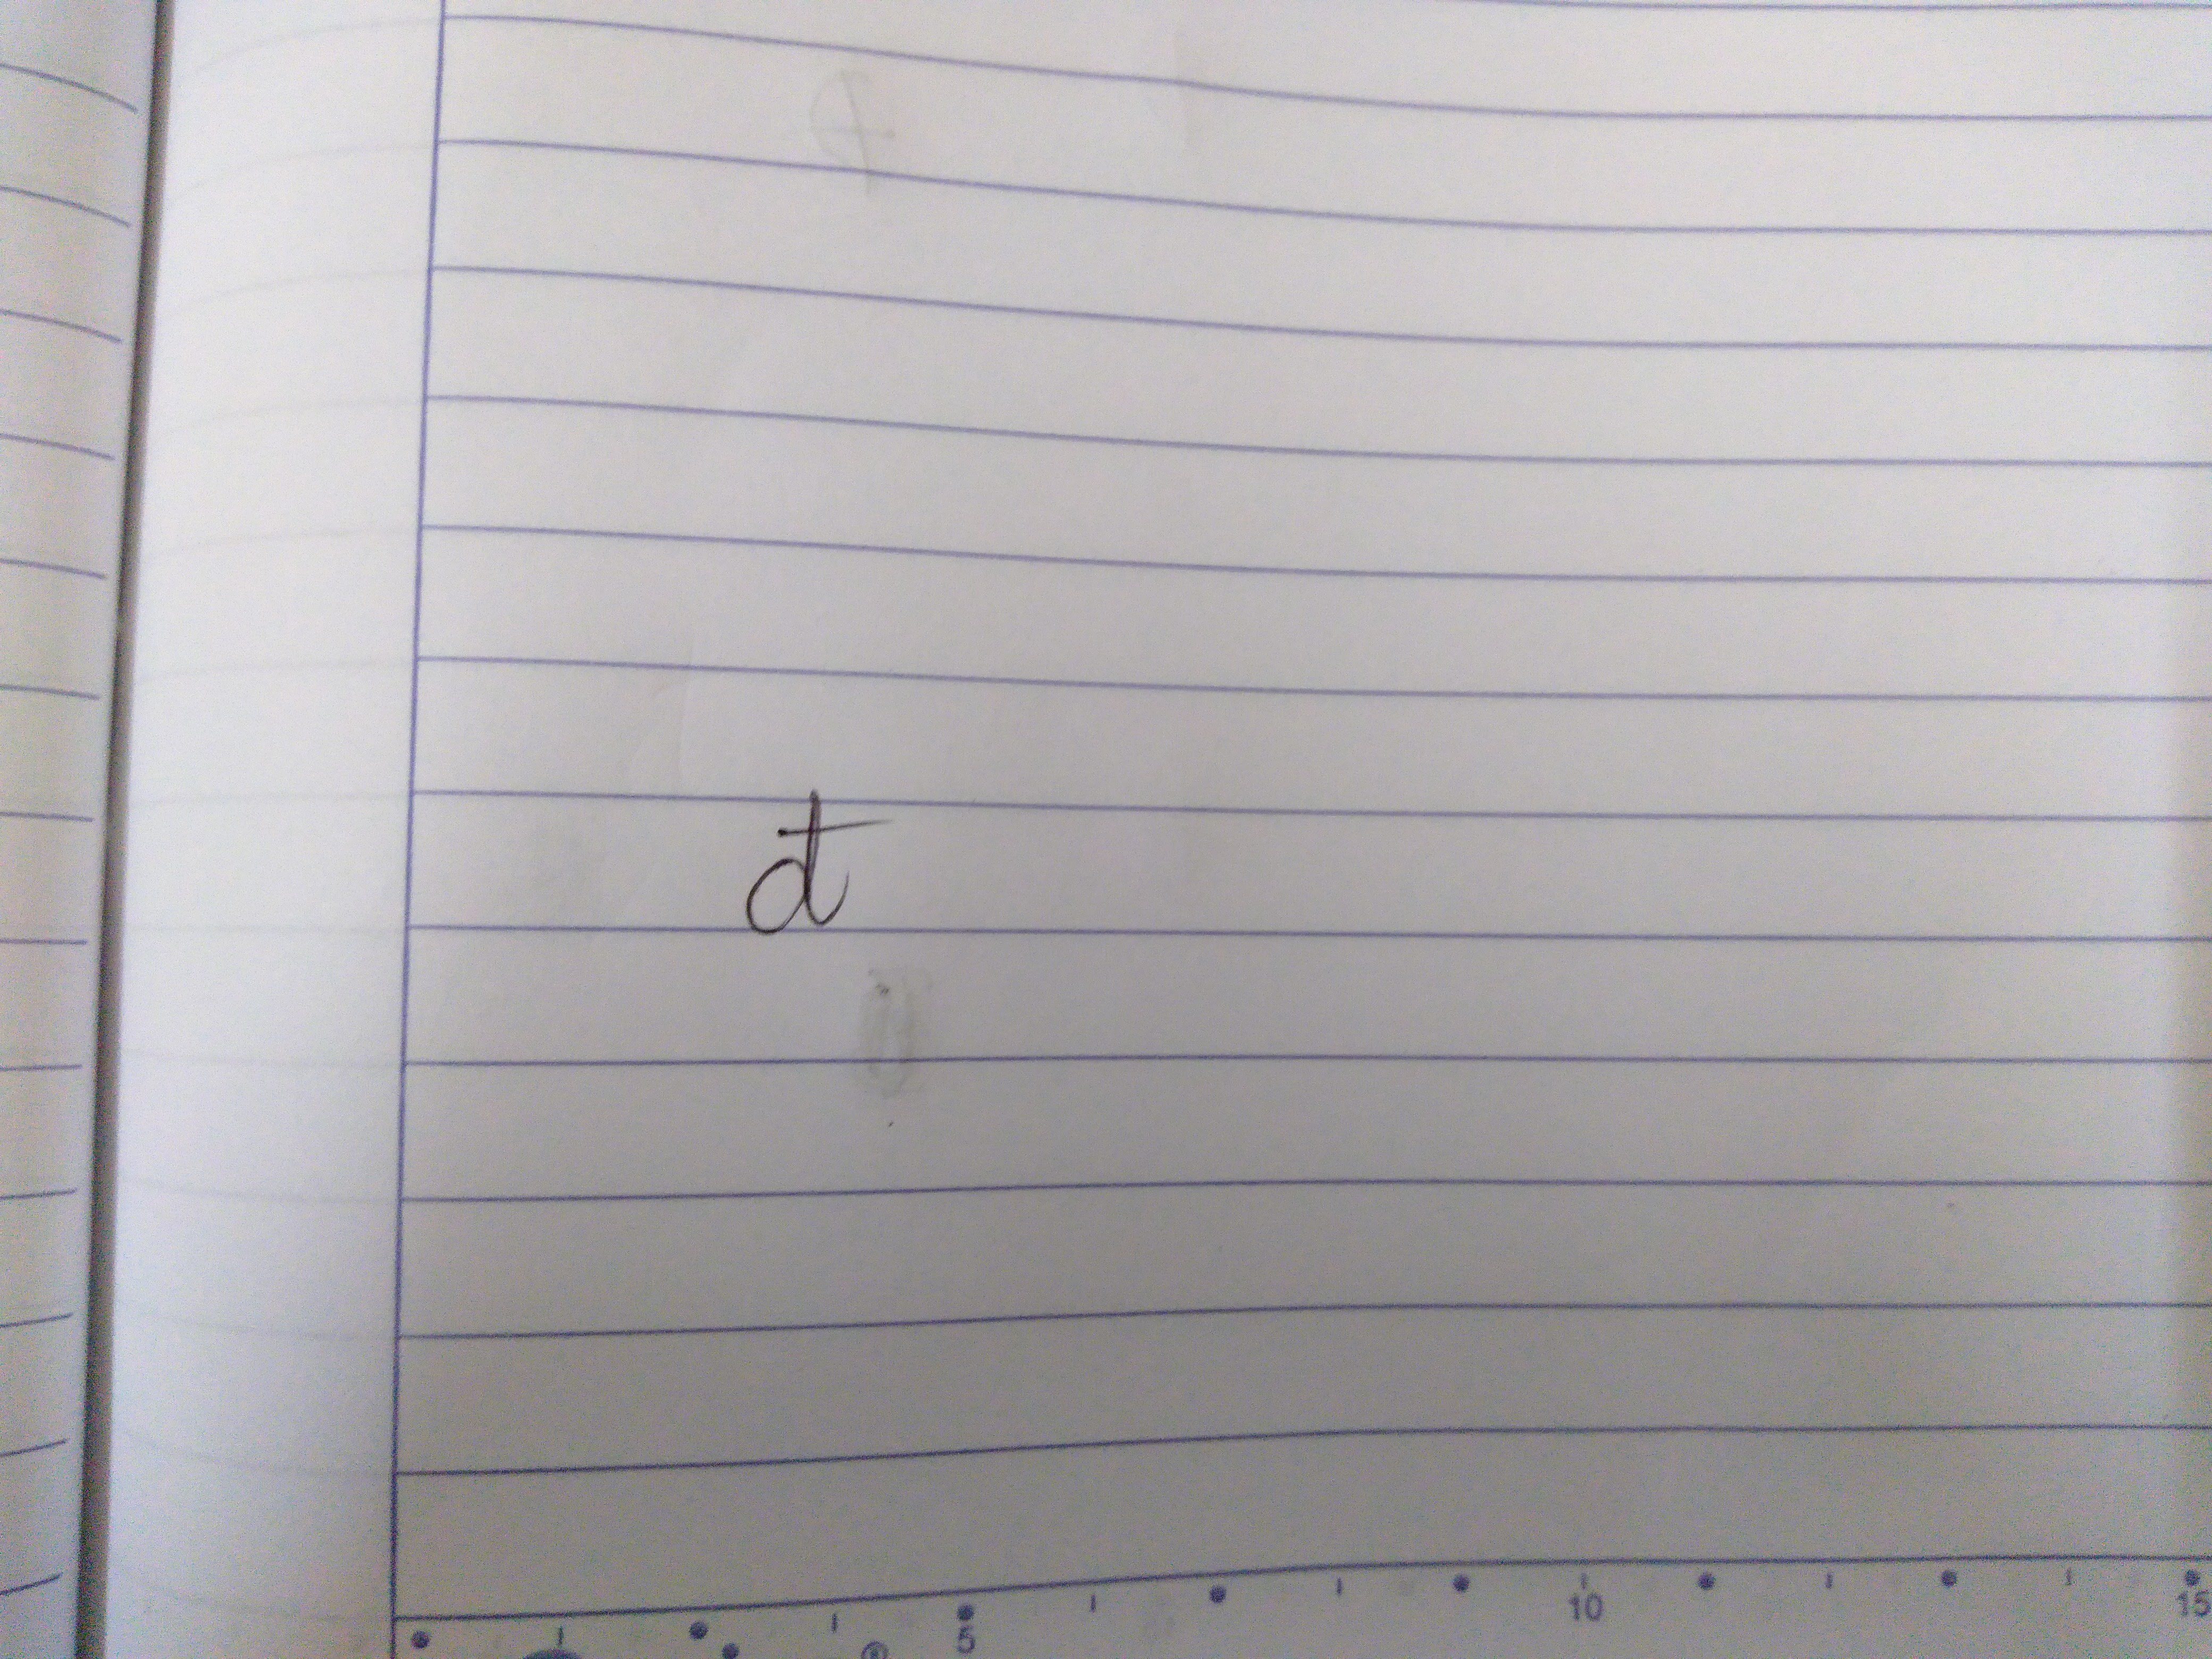 đ
5 10 15